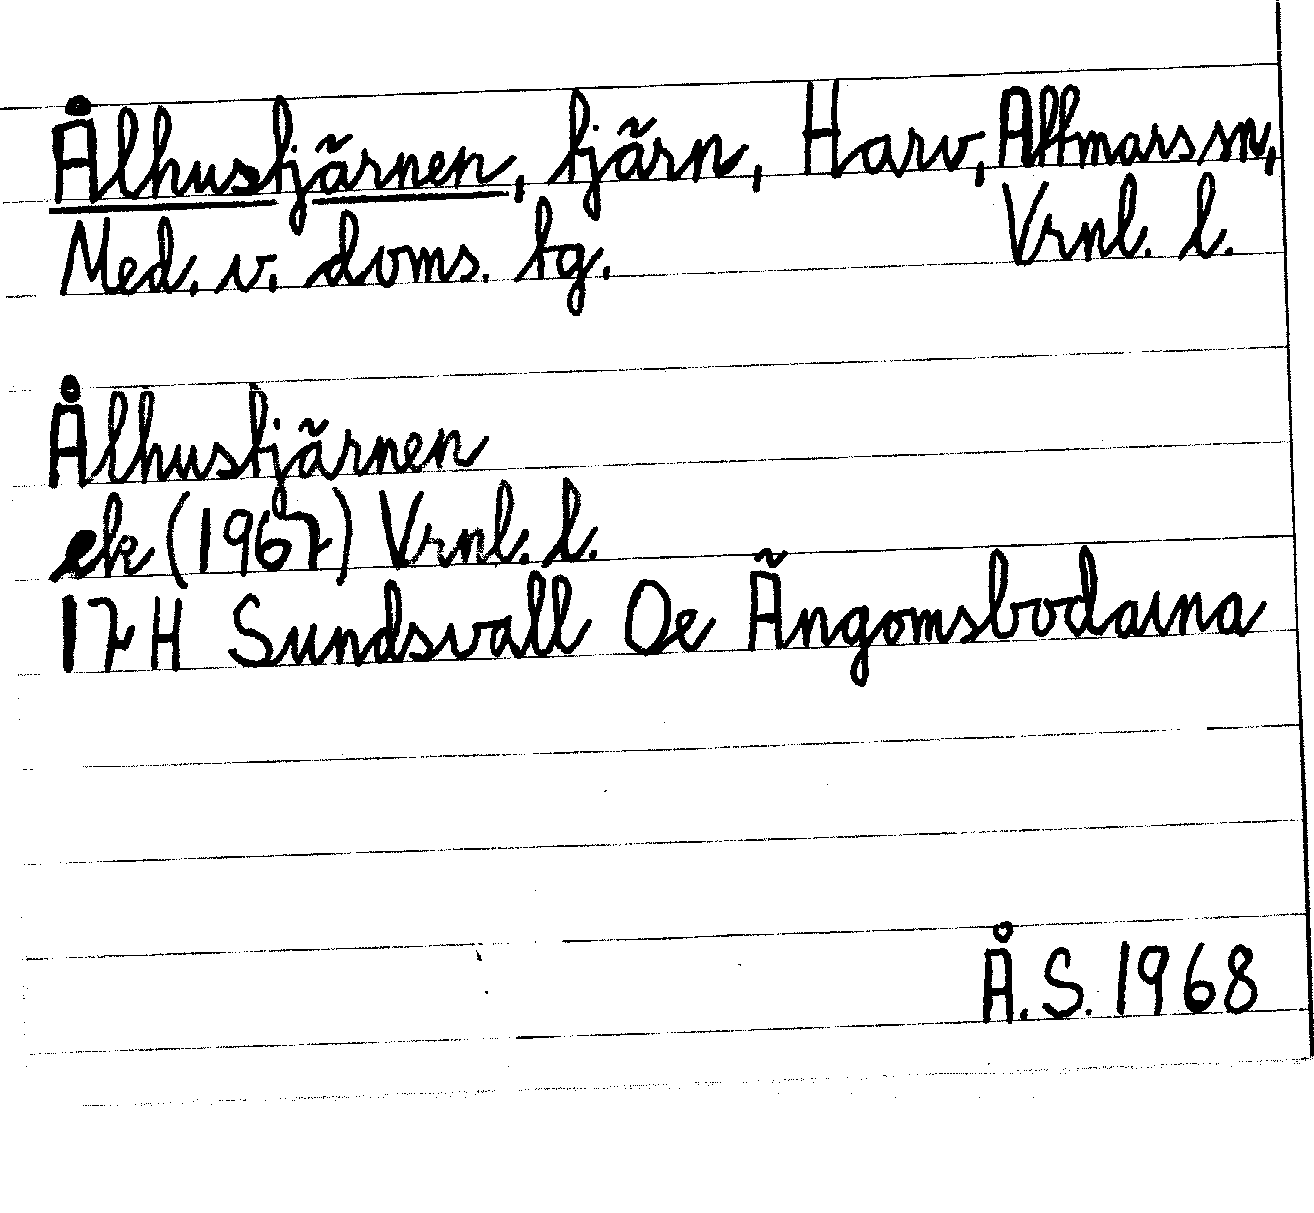 Ålhustjärnen, tjärn, Harv, Attmars sn,
Med. v. doms. tg. Vrnl. l.
Ålhustjärnen
ek (1967) Vrnl. l.
17H Sundsvall Oe Ängomsbodarna
Å. S. 1968